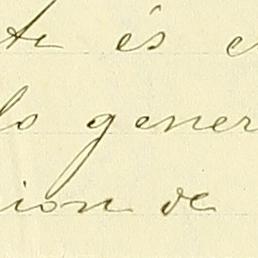 te és e
lo gener
ion de